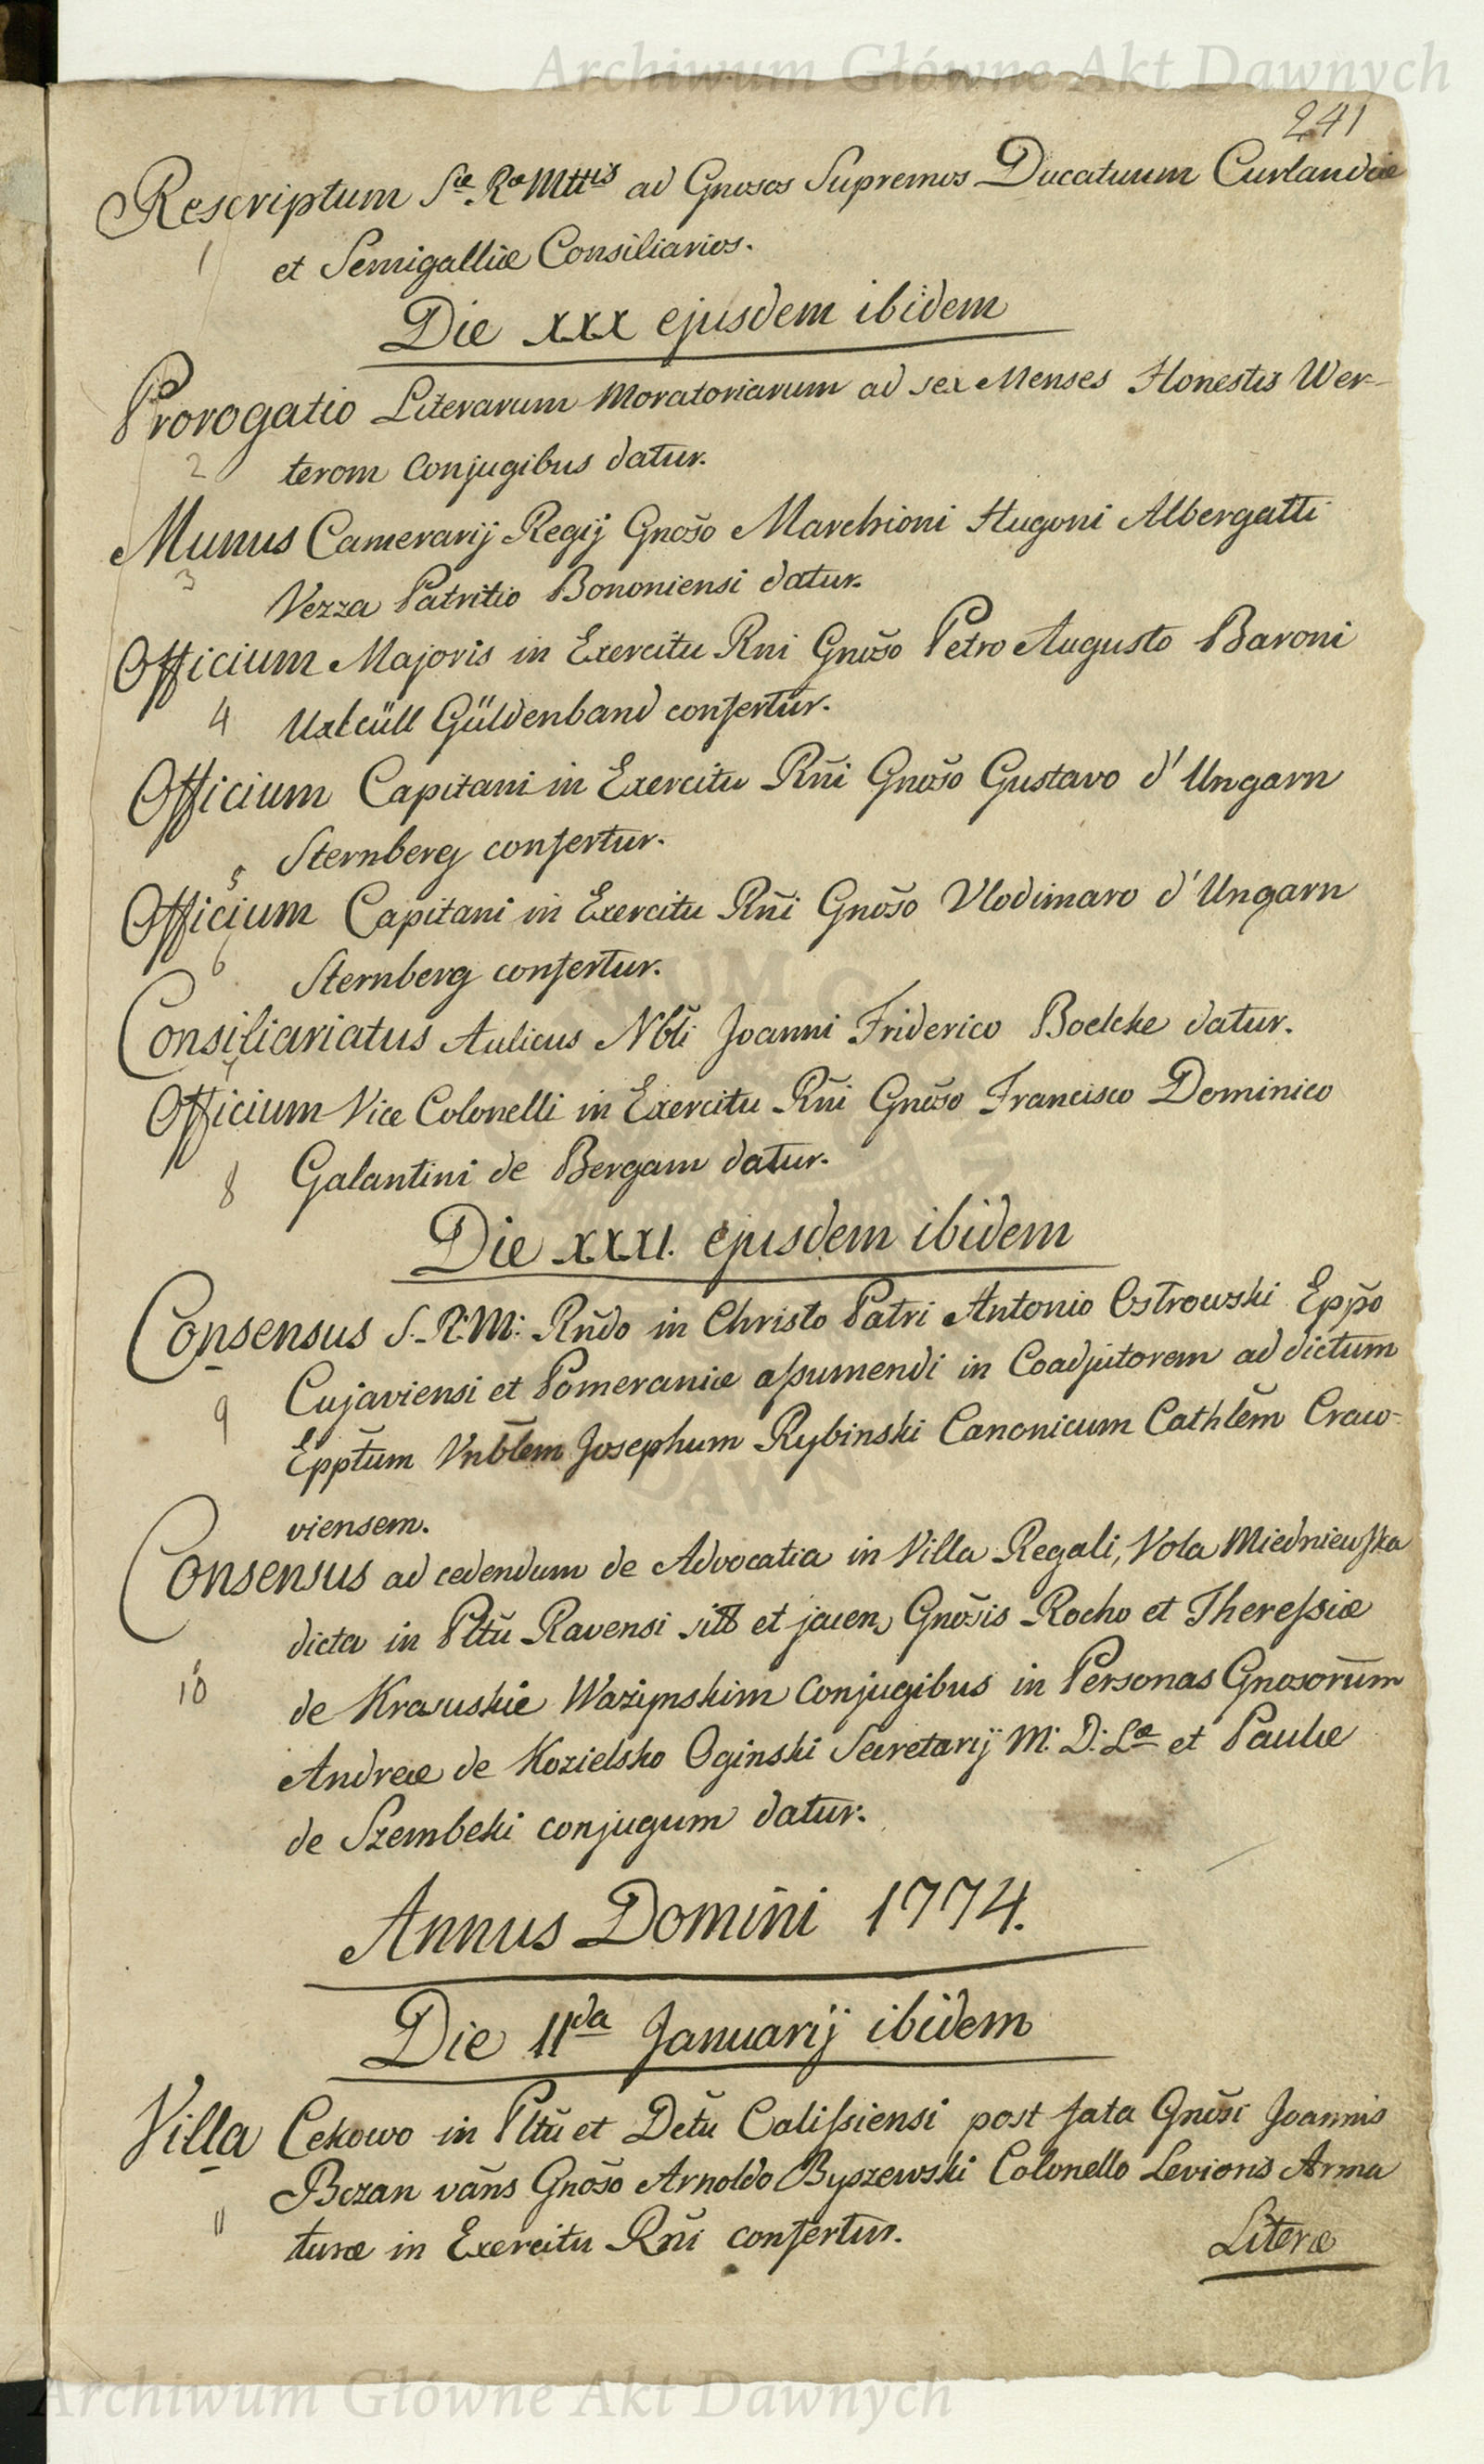 Archiwum Główne Akt Dawnych
241
Rescriptum Sæ Ræ Mttis ad Gnosos Supremos Ducatuum Curlandiæ
1 et Semigalliæ Consiliarios.
Die XXX ejusdem ibidem
Prorogatio Literarum Moratoriarum ad sex Menses Honestis Wer-
2 terom Conjugibus datur.
Munus Camerarij Regij Gnõso Marchioni Hugoni Albergatti
3 Vezza Patritio Bononiensi datur.
Officium Majoris in Exercitu Rni Gnõso Petro Augusto Baroni
4 Uxlcüll Güldenband confertur.
Officium Capitani in Exercitu Rñi Gnõso Gustavo d'Ungarn
5 Sternberg confertur.
Officium Capitani in Exercitu Rñi Gnõso Vlodimaro d'Ungarn
6 Sternberg confertur.
Consiliariatus Aulicus Nbli Joanni Friderico Boelcke datur.
7
Officium Vice Colonelli in Exercitu Rñi Gnõso Francisco Dominico
8 Galantini de Bergam datur.
Die XXXI. ejusdem ibidem
Consensus S. R. M: Rñdo in Christo Patri Antonio Ostrowski Eppõ
Cujaviensi et Pomeraniæ assumendi in Coadjutorem ad dictum
9 Epptum Vnblem Josephum Rybinski Canonicum Cathlem Craco-
viensem.
Consensus ad cedendum de Advocatia in Villa Regali, Vola Miedniewska
dicta in Pltũ Ravensi sitt et jacen, Gnõsis Rocho et Theressiæ
10 de Krasuskie Ważynskim Conjugibus in Personas Gnosorum
Andreæ de Kozielsko Oginski Secretarij M. D. Læ et Paulæ
de Szembeki conjugum datur.
Annus Domini 1774.
Die 11da Januarij ibidem
Villa Cekowo in Pltũ et Dctũ Calissiensi post fata Gnõsi Joannis
Bczan vãns Gnõso Arnoldo Byszewski Colonello Levioris Arma
11 turæ in Exercitu Rñi confertur.
Literæ
Archiwum Główne Akt Dawnych